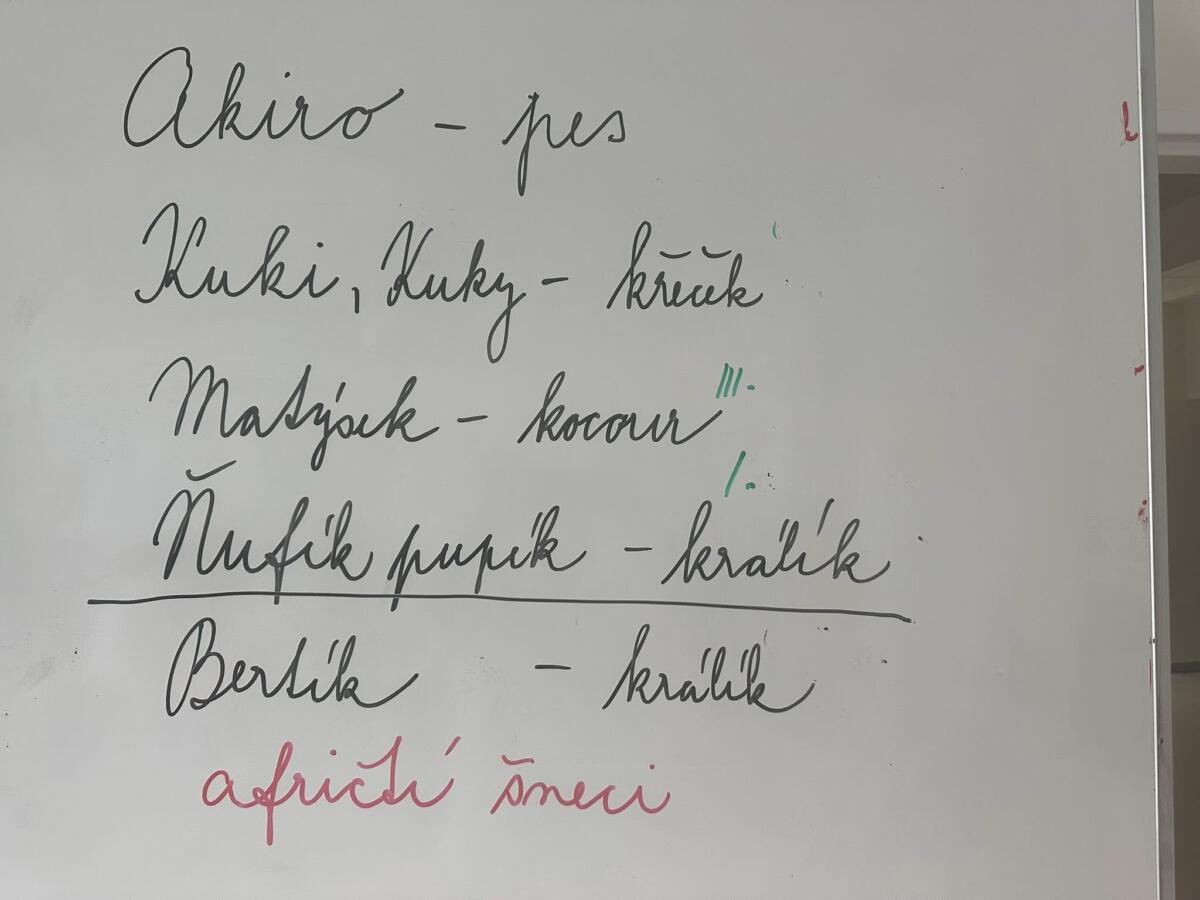 Akiro - pes
Kuki, Kuky - křeček
Matýsek - kocour III.
I.
Ňufík pupík - králík
Bertík - králík
afričtí šneci